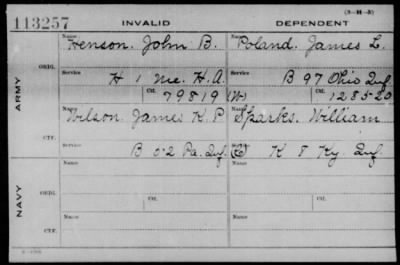 (3-M-5)
113257 INVALID DEPENDENT
Name Name
Henson. John B. Poland. James L.
ORIG.
Service Service
H 1 Me. H.A. B 97 Ohio Inf.
Ctf. Ctf.
79819 (W) 1285-20
ARMY
Name Name
Wilson. James K. P. Sparks. William
CTF.
Service
B 52 Pa. Inf. (C) K 8 Ky. Inf.
Name Name
ORIG.
Service Service
Ctf. Ctf.
NAVY
Name Name
CTF.
Service Service